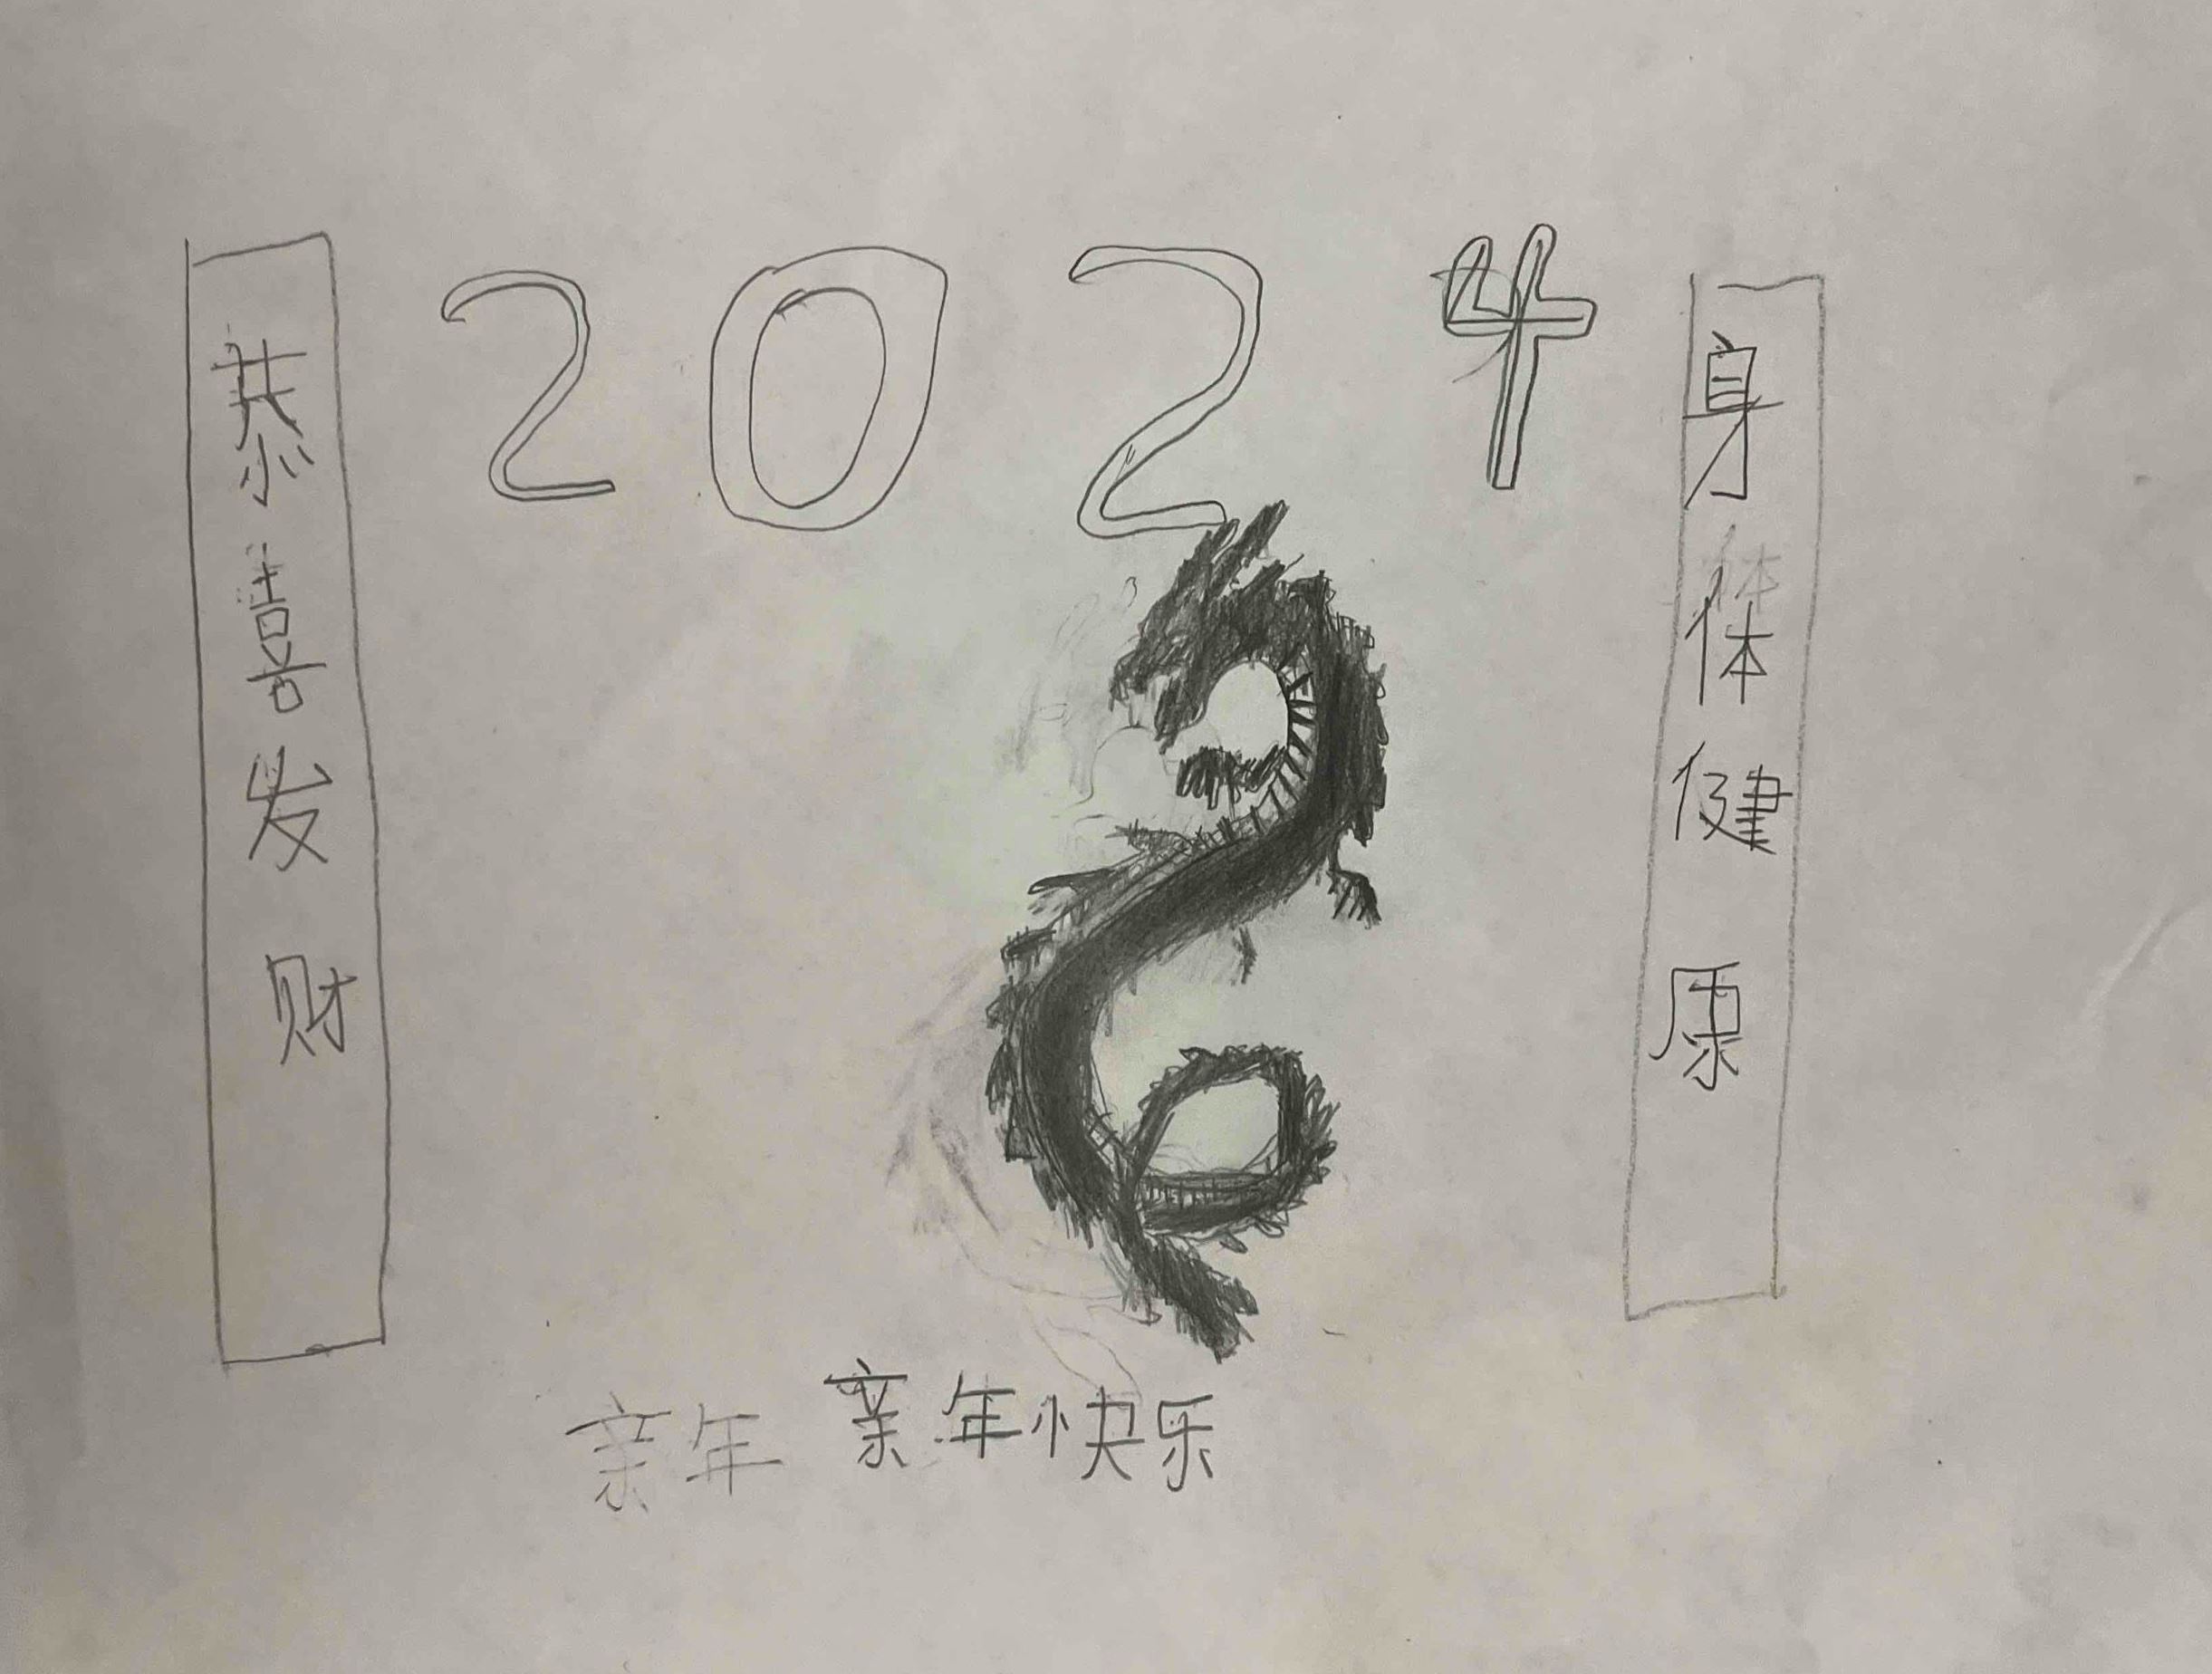 2024
恭喜发财
身体健康
亲年 亲年快乐